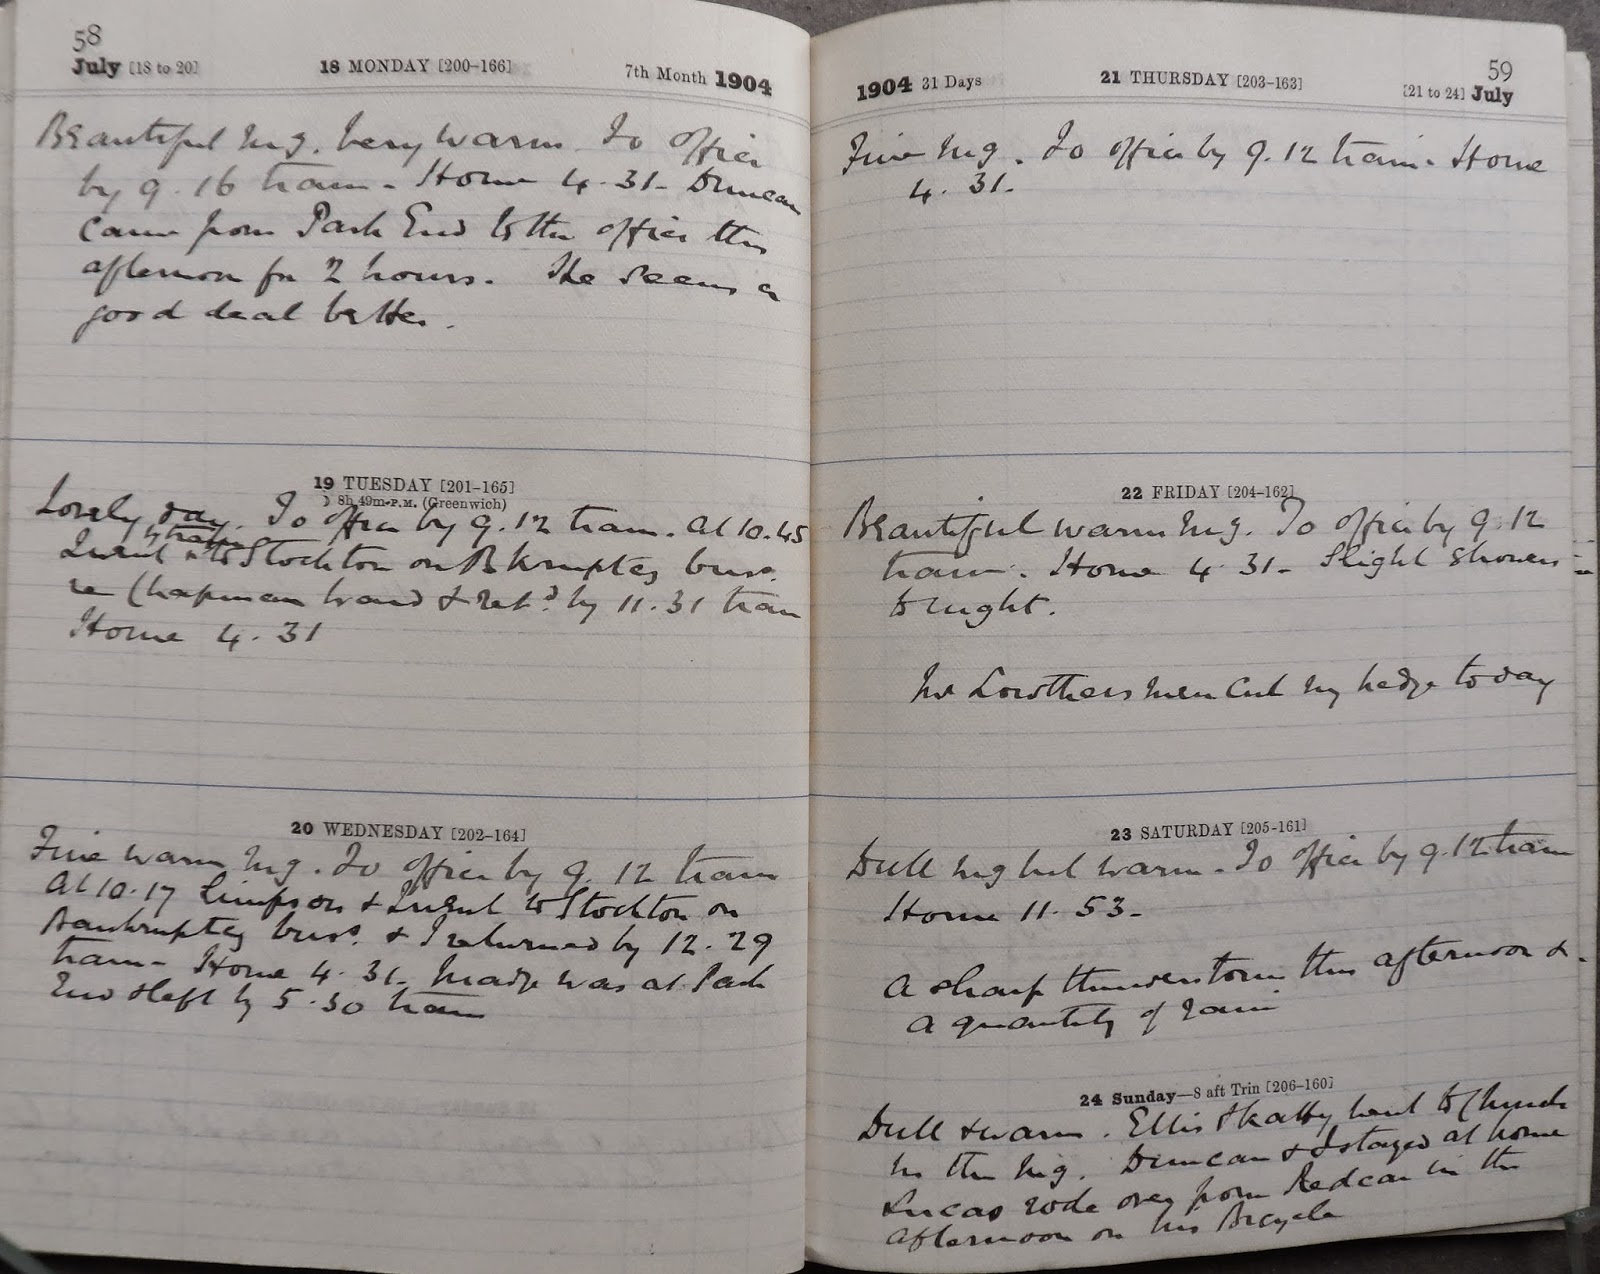 58
July [18 to 20] 18 MONDAY [200-166] 7th Month 1904
Beautiful mg. Very warm. To office
by 9.16 train - Home 4.31 - Duncan
came from Park End to the office this
afternoon for 2 hours. He seems a
good deal better.
19 TUESDAY [201-165]
☽ 8h 49m P.M. (Greenwich)
Lovely day. To office by 9.12 train. At 10.45
by trap
I went to Stockton on Bkruptcy busns.
re Chapman & retd by 11.31 train
Home 4.31
20 WEDNESDAY [202-164]
Fine warm mg. To office by 9.12 train
At 10.17 Simpson & I went to Stockton on
Bankruptcy busns. & I returned by 12.29
train - Home 4.31. Madge was at Park
End & left by 5.30 train
59
1904 31 Days 21 THURSDAY [203-163] [21 to 24] July
Fine mg. To office by 9.12 train - Home
4.31.
22 FRIDAY [204-162]
Beautiful warm mg. To office by 9.12
train. Home 4.31 - Slight showers
tonight.
Mr Lowthers men cut my hedge today
23 SATURDAY [205-161]
Dull mg but warm - To office by 9.12 train
Home 11.53 -
A sharp thunderstorm this afternoon &
a quantity of rain
24 Sunday—8 aft Trin [206-160]
Dull & warm. Ellis & Katty went to Church
in the mg. Duncan & I stayed at home
Lucas rode over from Redcar in the
afternoon on his Bicycle